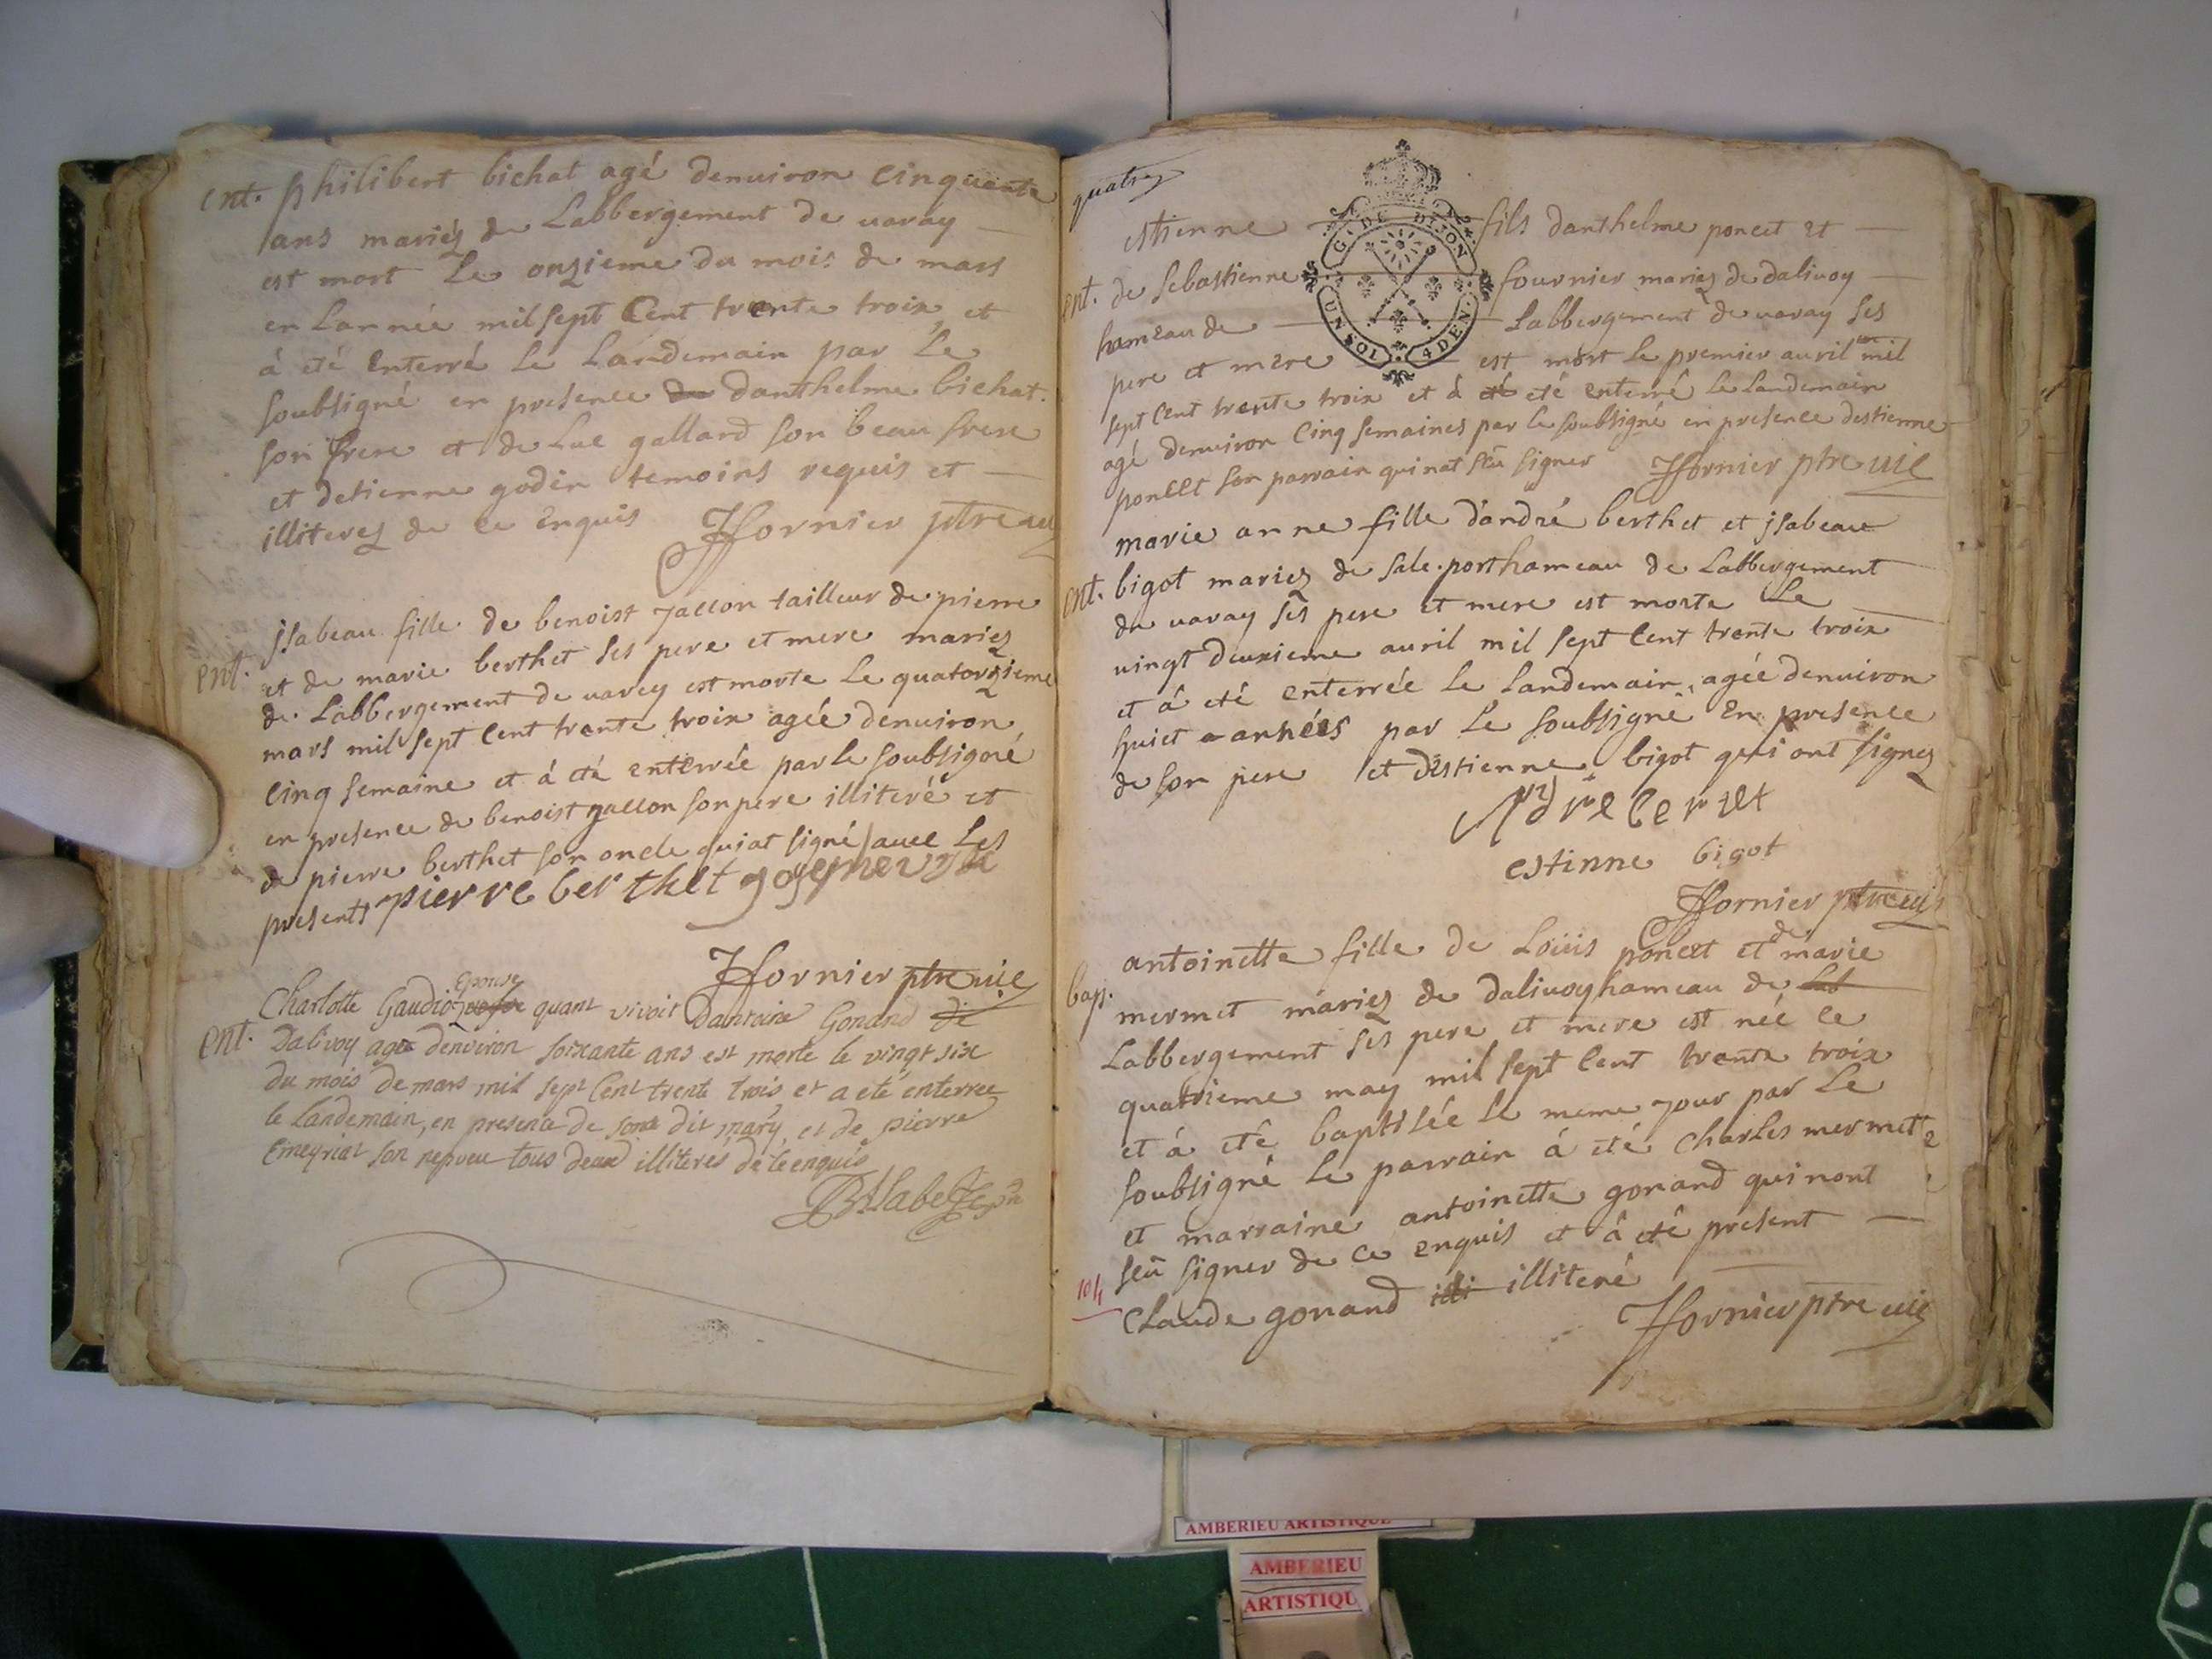 ent. philibert bichat agé denuiron Cinquante
ans mariéz de Labbergement de uaray
est mort Le onzieme du mois de mars
en Lannée mil sept Cent trente troix et
á eté Enterré Le Landemain par Le
soubsigné en presence danthelme bichat.
son frere et de Luc galland son beau frere
et detienne godin temoins requis et
illiterez de ce Enquis Hornier ptre uic
jsabeau fille de benoist jallon tailleur de pierre
ent. et de marie berthet ses pere et mere mariez
de Labbergement de uarey est morte Le quatorzieme
mars mil sept Cent trante troix agée denuiron
Cinq semaine et á eté enterrée par le soubsigné
en presence de benoist jallon son pere illiteré et
de pierre berthet son oncle qui at signé auec Les
presents pierre berthet
Hornier ptre uic
Epouse
Charlotte Gaudio quant vivoit Dantoine Gonand de
ent. Dalivoy agee denviron soixante ans est morte le vingt six
du mois de mars mil sept Cent trente trois et a eté enterree
le landemain, en presence de sont dit mary, et de pierre
Emeyriat son nepveu tous deux illiterés de ce enquis
quatre
G. DE DIJON
UN SOL 4 DEN.
estienne fils danthelme poncet et
ent. de sebastienne fournier mariez de dalivoy
hameau de Labbergement de uaray ses
pere et mere est mort le premier auril mil
sept Cent trente troix et á eté enterré le landemain
agé denuiron Cinq semaines par le soubsigné en presence destienne
poncet son parrain qui nat sceu signer Hornier ptre uic
marie anne fille dandré berthet et jsabeau
ent. bigot mariez de sale.port hameau de Labbergement
de uaray ses pere et mere est morte Le
uingt deuxieme auril mil sept Cent trente troix
et á eté enterrée Le Landemain agée denuiron
huict années par Le soubsigné En presence
de son pere et destienne bigot qui ont signez
estinne bigot
Hornier ptre uic
de
antoinette fille de Loüis poncet et marie
bap. mermet mariez de dalivoy hameau de Lab
Labbergement ses pere et mere est née Le
quatrieme may mil sept Cent trente troix
et á eté baptisée Le meme jour par Le
soubsigné Le parrain á eté Charles mermet
et marraine antoinette gonand qui nont
seü signer de ce enquis et á eté present
104
Claude gonand illi illiteré
Hornier ptre uic
AMBERIEU ARTISTIQUE
AMBERIEU
ARTISTIQU